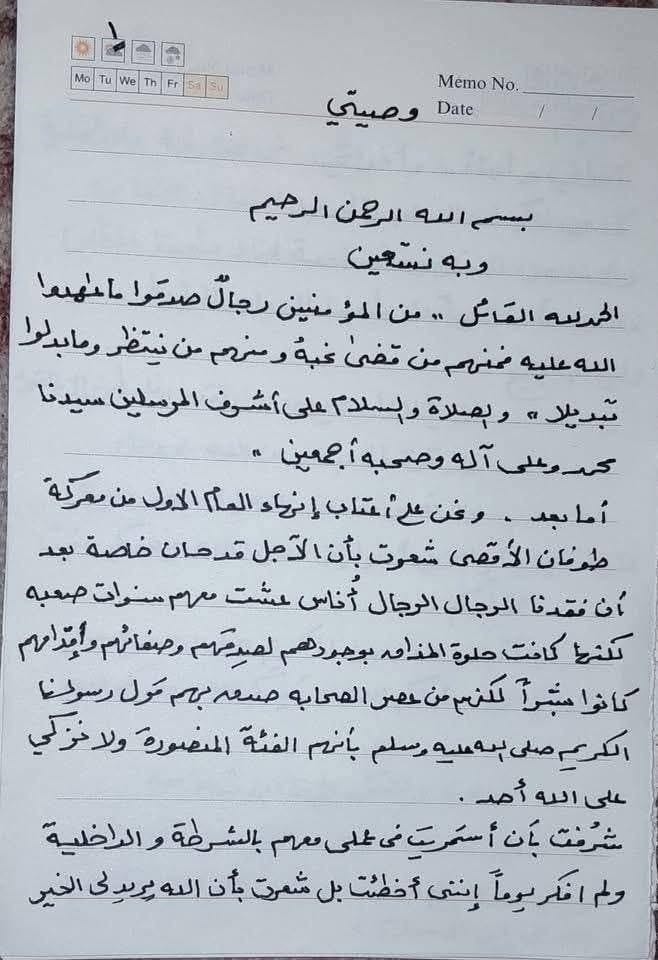 ١
Mo Tu We Th Fr Sa Su
Memo No.
Date / /
وصيتي
بسم الله الرحمن الرحيم
وبه نستعين
الحمد لله القائل ,, من المؤمنين رجالٌ صدقوا ما عاهدوا
الله عليه فمنهم من قضى نحبهُ ومنهم من ينتظر وما بدلوا
تبديلا ,, والصلاة والسلام على أشرف المرسلين سيدنا
محمد وعلى آله وصحبه أجمعين ,,
أما بعد . ونحن على أعتاب إنهاء العام الاول من معركة
طوفان الأقصى شعرت بأن الآجل قد حان خاصة بعد
أن فقدنا الرجال الرجال أُناس عشت معهم سنوات صعبه
لكنها كانت حلوة المذاق بوجودهم لصدقهم وصفاتهم وأقدامهم
كانوا بشراً لكنهم من عصر الصحابه صدق بهم قول رسولنا
الكريم صلى الله عليه وسلم بأنهم الفئة المنصورة ولا نزكي
على الله أحد .
شرُفت بأن أستمريت في عملي معهم بالشرطة والداخلية
ولم افكر يوماً إنني أخطئت بل شعرت بأن الله يريد لي الخير